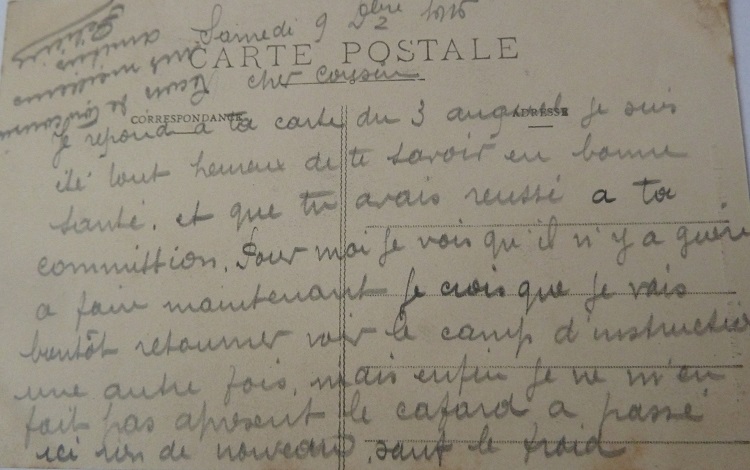 Samedi 9 Xbre 1916
CARTE POSTALE
cher cousin
CORRESPONDANCE ADRESSE
Je repond a ta carte du 3 auquel je suis
été tout heureux de te savoir en bonne
santé. et que tu avais reussé a ta
committion. Pour moi je vois qu'il n'y a guere
a faire maintenant je crois que je vais
bientôt retourner voir le camp d'instruction
une autre fois, mais enfin je ne m'en
fait pas apresent le cafard a passé
ici rien de nouveau, sauf le froid